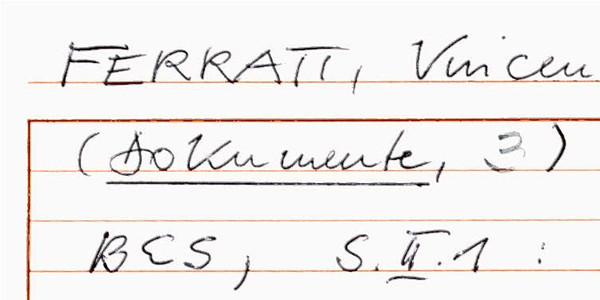 FERRATI, Vincen
(Dokumente, 3)
BES, S.II.1 :